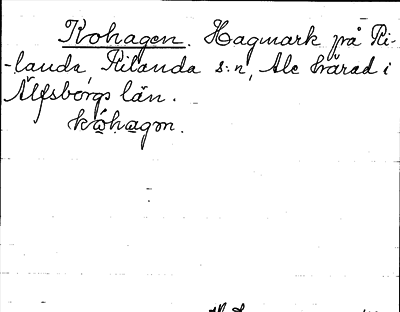 Kohagen. Hagmark på Ri-
-landa, Rilanda s:n, Ale härad i
Älfsborgs län.
kώhagɷn.